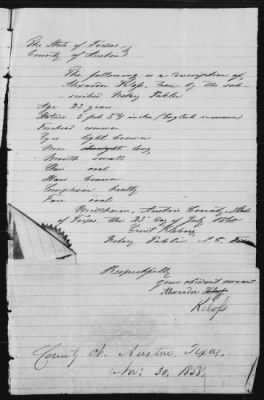 The State of Texas
County of Austin
The following is a description of
Alexander Kloss, taken by the sub-
scriber Notary Public
Age 33 years
Stature 5 feet 8¾ inches English measure
Forehead common
Eyes light brown
Nose straight long,
Mouth small
Chin oval
Hair brown
Complexion healthy
Face oval
Millheim, Austin County, State
of Texas the 23d day of July
Notary Public A. C. Texas
Respectfully
your obedient servant
Alexander Kloss
Kloss
County of Austin, Texas.
Nov. 30, 1858.